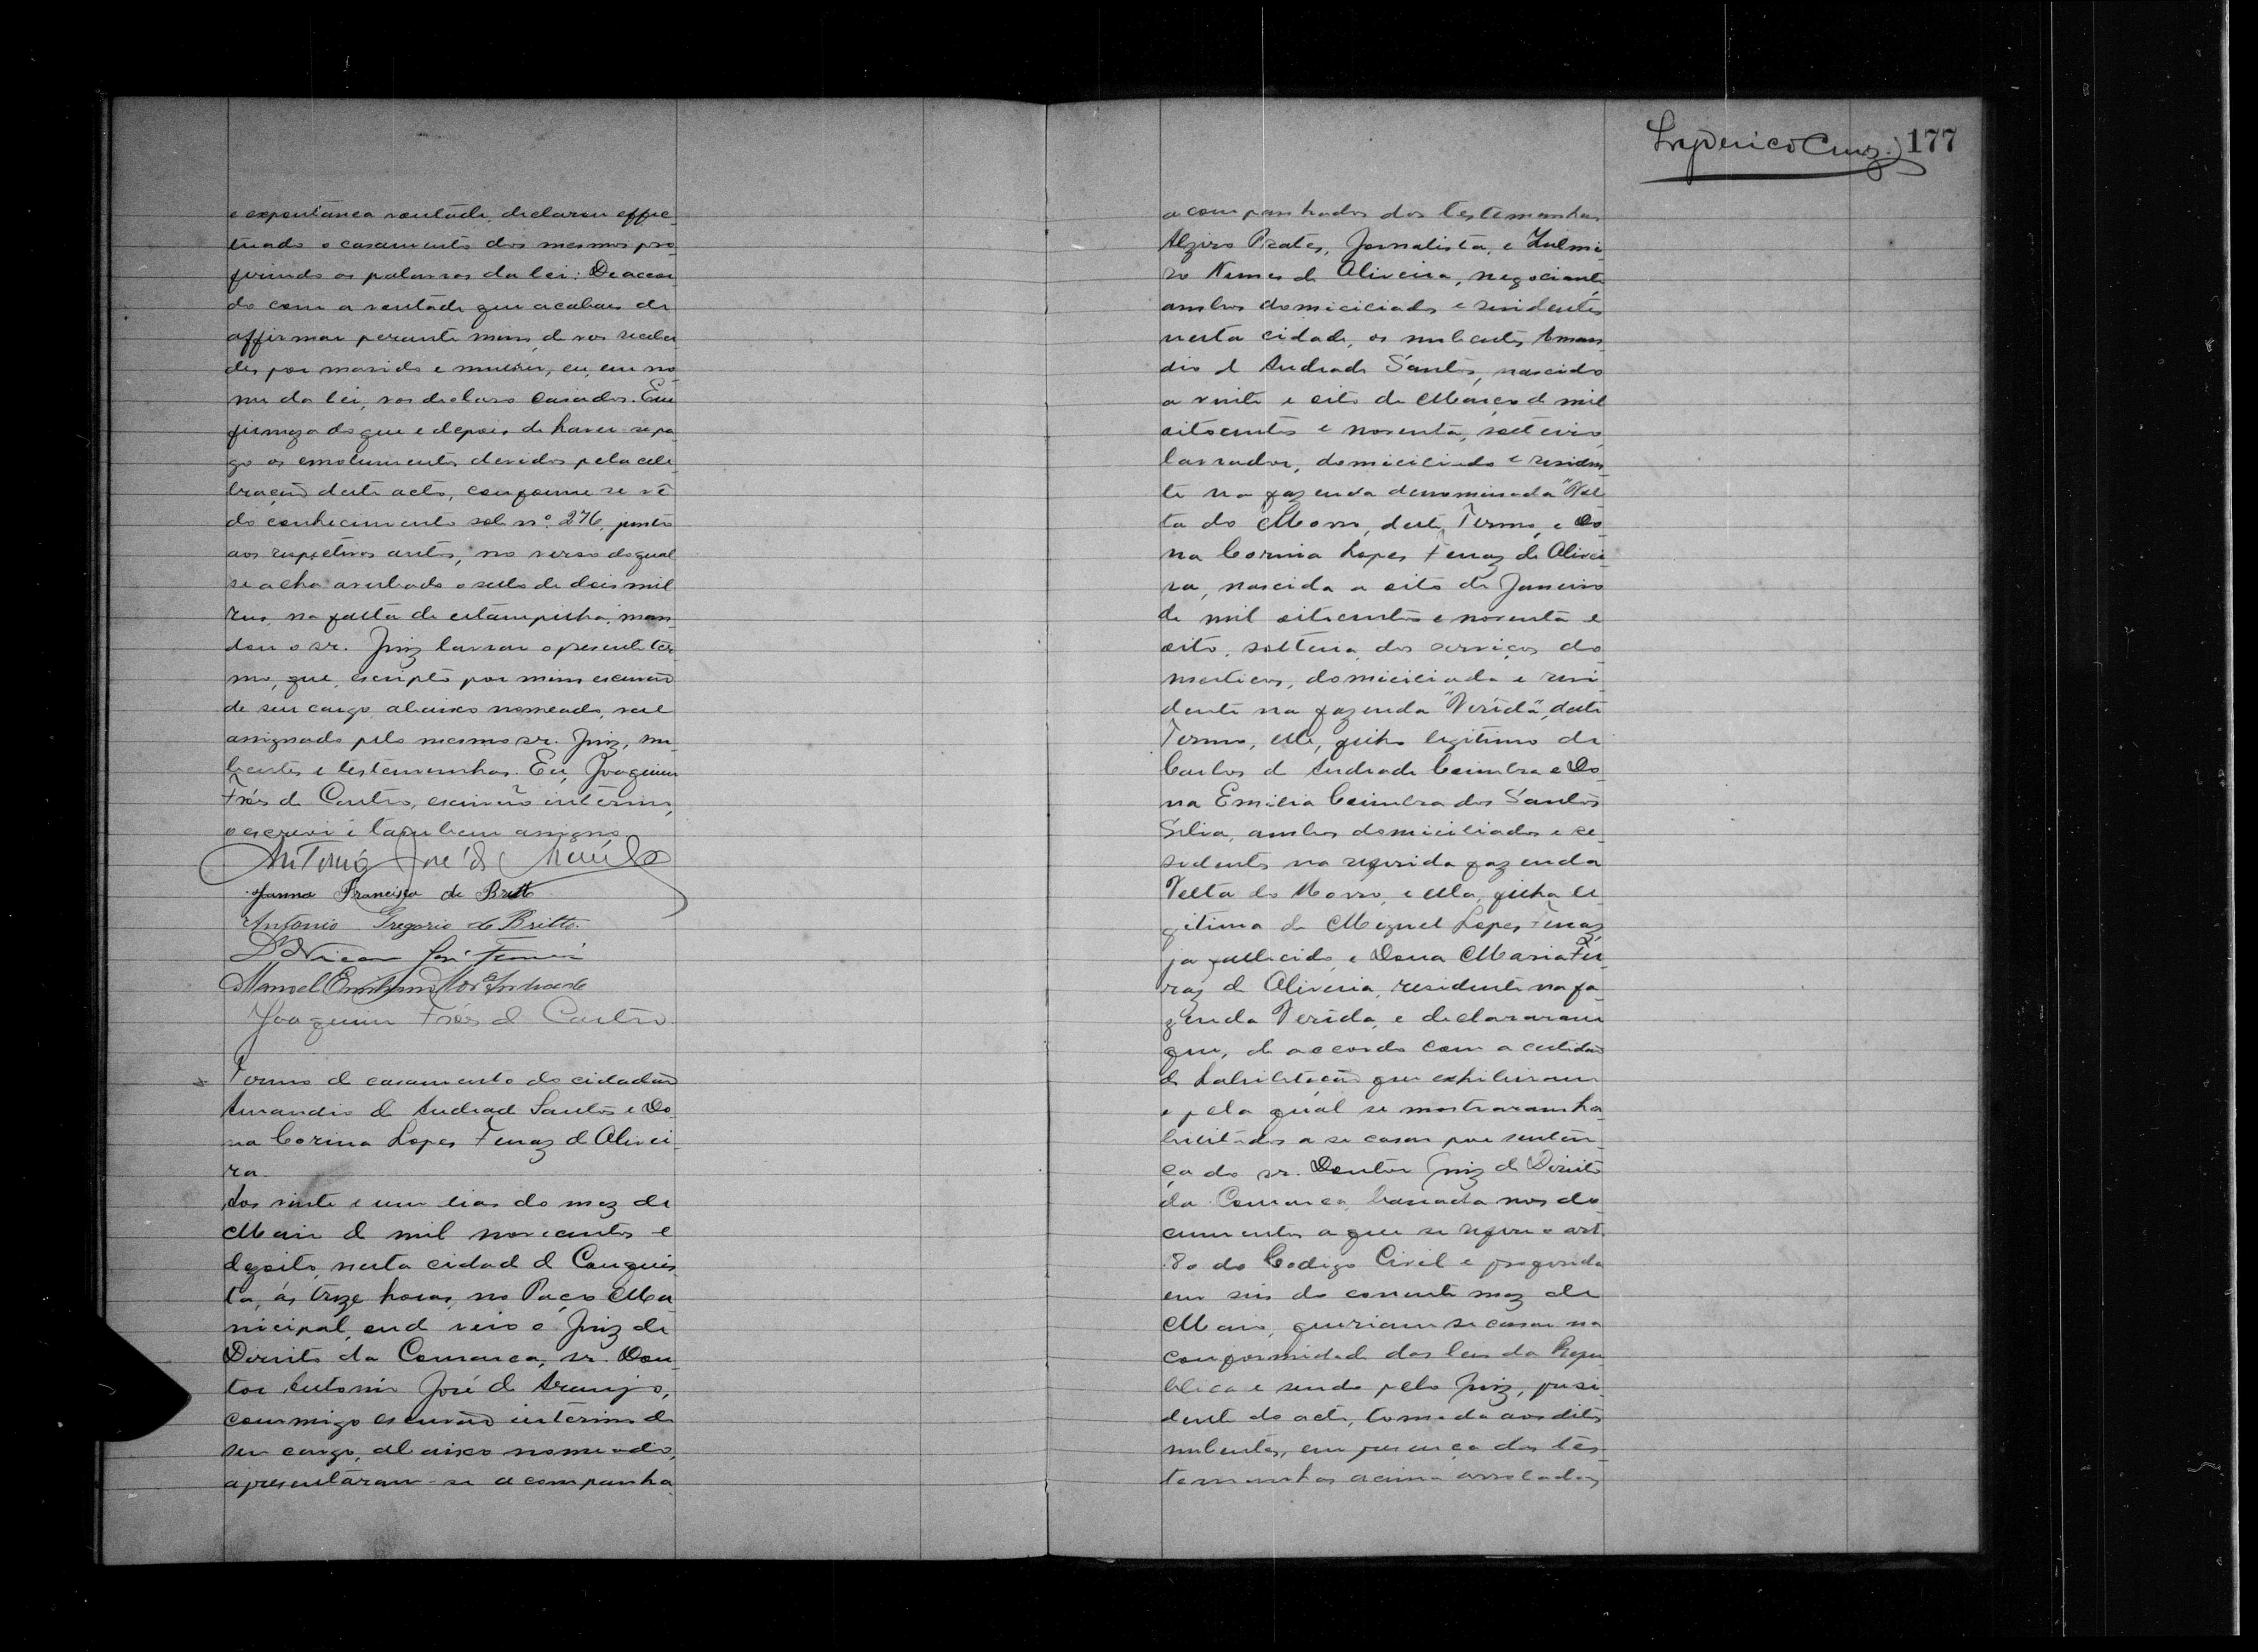 e expontanea vontade, declarou effec-
tuado o casamento dos mesmos pro-
ferindo as palavras da lei: De accor-
do com a vontade que acabaes de
affirmar perante mim, de vos recebe-
des por marido e mulher, eu, em no-
me da lei, vos declaro casados. Em
firmeza do que e depois de haver se pa-
go os emolumentos devidos pela cele-
bração deste acto, conforme se vê
do conhecimento sob nº 276, junto
aos respectivos autos, no verso do qual
se acha averbado o sello de dois mil
reis, na falta de estampilha, man-
dou o sr. Juiz lavrar o presente ter-
mo, que, escripto por mim escrivão
de seu cargo abaixo nomeado, vae
assignado pelo mesmo sr. Juiz, nu-
bentes e testemunhas. Eu, Joaquim
Fróes de Castro, escrivão interino,
o escrevi e tambem assigno.
Antonio José de Araujo
Joanna Francisca de Britto
Antonio Gregorio de Britto.
José Ferreira
Manoel Emiliano Andrade
Joaquim Fróes de Castro.
Termo de casamento do cidadão
Amandio de Andrade Santos e Do-
na Corina Lopes Ferraz de Olivei-
ra.
Aos vinte e um dias do mez de
Maio de mil novecentos e
dezoito, nesta cidade de Conquis-
ta, ás treze horas, no Paço Mu-
nicipal, onde veio o Juiz de
Direito da Comarca, sr. Dou-
tor Antonio José de Araujo,
commigo escrivão interino de
seu cargo, abaixo nomeado,
apresentaram-se acompanha
Lyderico Cruz. 177
acompanhados das testemunhas
Alziro Prates, Jornalista, e Zulmi-
ro Nunes de Oliveira, negociante,
ambos domiciliados e residentes
nesta cidade, os nubentes Aman-
dio de Andrade Santos, nascido
a vinte e oito de Março de mil
oitocentos e noventa, solteiro,
lavrador, domiciliado e residen-
te na fazenda denominada "Vol-
ta do Morro, deste Termo, e Do-
na Corina Lopes Ferraz de Olivei-
ra, nascida a oito de Janeiro
de mil oitocentos e noventa e
oito, solteira, dos serviços do-
mesticos, domiciliada e resi-
dente na fazenda "Verêda", deste
Termo, elle, filho legitimo de
Carlos de Andrade Coimbra e Do-
na Emilia Coimbra dos Santos
Silva, ambos domiciliados e re-
sidentes na referida fazenda
Volta do Morro, e ella, filha le-
gitima de Miguel Lopes Ferraz,
ja fallecido, e Dona Maria Fer-
raz de Oliveira, residente na fa-
zenda Verêda, e declararam
que, de accordo com a certidão
de habilitação que exhibiram
e pela qual se mostraram ha-
bilitados a se casar por senten-
ça do sr. Doutor Juiz de Direito
da Comarca, baseada nos do-
cumentos a que se refere o art.
180 do Codigo Civil e proferida
em seis do corrente mez de
Maio, queriam se casar na
conformidade das leis da Repu-
blica e sendo pelo Juiz, presi-
dente do acto, tomada aos ditos
nubentes, em presença das tes-
temunhas acima arroladas